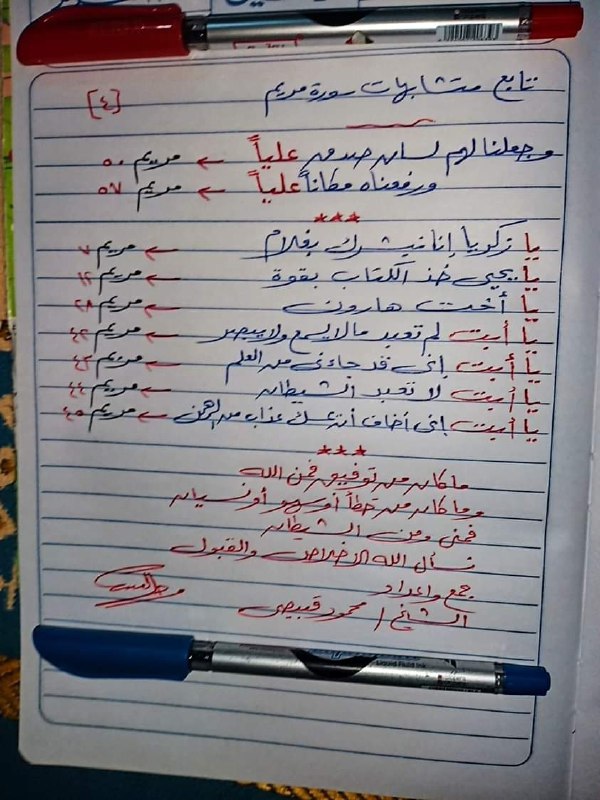 تابع متشابهات سورة مريم [٤]
وجعلنا لهم لسان صدق علياً ← مريم ٥٠
ورفعناه مكاناً علياً ← مريم ٥٧
***
يا زكريا إنا نبشرك بغلام ← مريم ٧
يا يحيى خذ الكتاب بقوة ← مريم ١٢
يا أخت هارون ← مريم ٢٨
يا أبت لم تعبد مالا يسمع ولا يبصر ← مريم ٤٢
يا أبت إنى قد جاءنى من العلم ← مريم ٤٣
يا أبت لا تعبد الشيطان ← مريم ٤٤
يا أبت إنى أخاف أن يمسك عذاب من الرحمن ← مريم ٤٥
***
ما كان من توفيق فمن الله
وما كان من خطأ أو سهو أو نسيان
فمنى ومن الشيطان
نسأل الله الإخلاص والقبول
جمع واعداد
الشيخ / محمود قبيصى
Liquid Fluid Ink